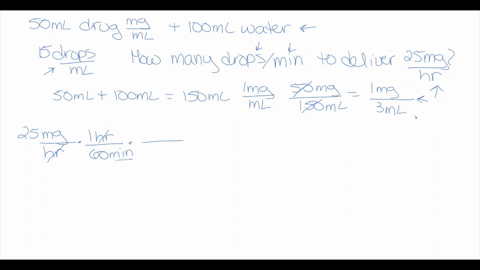 50mL drug mg/mL + 100mL water ←
15 drops/mL How many drops/min to deliver 25mg/hr?
50mL + 100mL = 150mL 1mg/mL 50mg/150mL = 1mg/3mL
25mg/hr · 1hr/60min ·